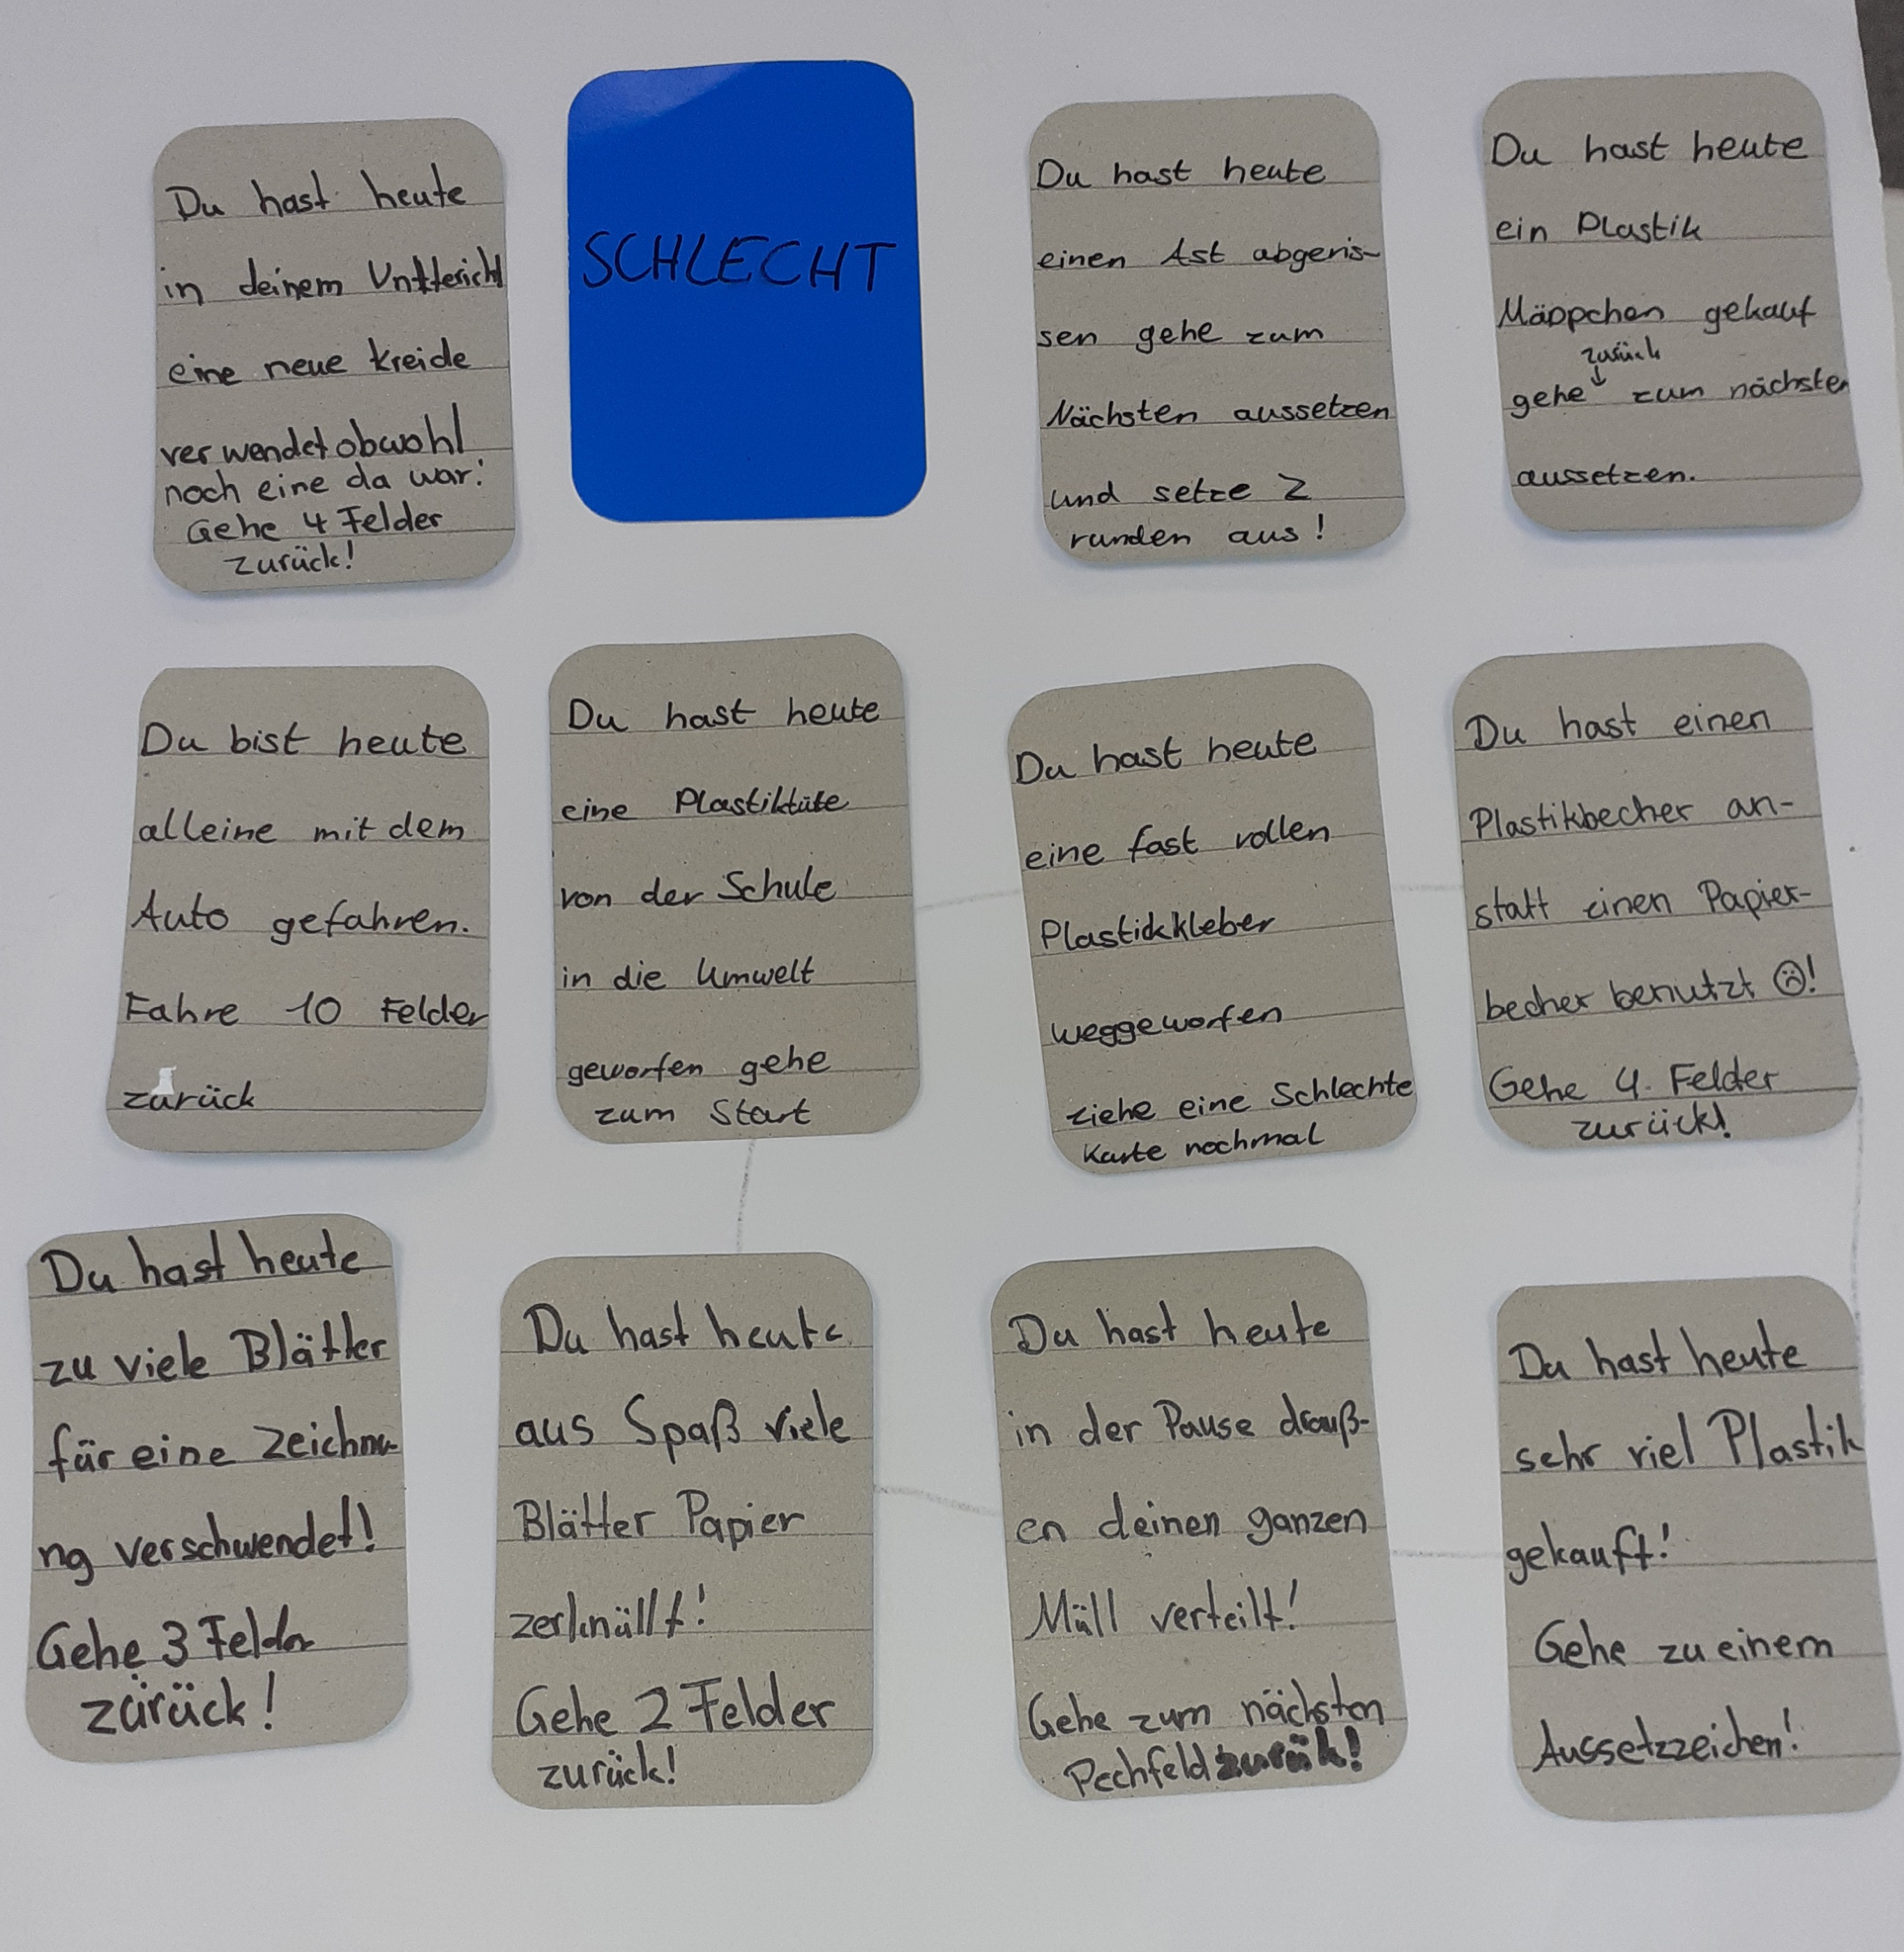 Du hast heute
in deinem Unttericht
eine neue Kreide
verwendet obwohl
noch eine da war!
Gehe 4 Felder
zurück!
SCHLECHT
Du hast heute
einen Ast abgeris-
sen gehe zum
Nächsten aussetzen
und setze 2
runden aus!
Du hast heute
ein Plastik
Mäppchen gekauf
zurück
↓
gehe zum nächsten
aussetzen.
Du bist heute
alleine mit dem
Auto gefahren.
Fahre 10 Felder
zurück
Du hast heute
eine Plastiktüte
von der Schule
in die Umwelt
geworfen gehe
zum Start
Du hast heute
eine fast vollen
Plastickkleber
weggeworfen
ziehe eine Schlechte
Karte nochmal
Du hast einen
Plastikbecher an-
statt einen Papier-
becher benutzt ☹!
Gehe 4. Felder
zurück!
Du hast heute
zu viele Blätter
für eine Zeichnu-
ng verschwendet!
Gehe 3 Felder
zürück!
Du hast heute
aus Spaß viele
Blätter Papier
zerknüllt!
Gehe 2 Felder
zurück!
Du hast heute
in der Pause drauß-
en deinen ganzen
Müll verteilt!
Gehe zum nächsten
Pechfeld zurük!
Du hast heute
sehr viel Plastik
gekauft!
Gehe zu einem
Aussetzzeichen!